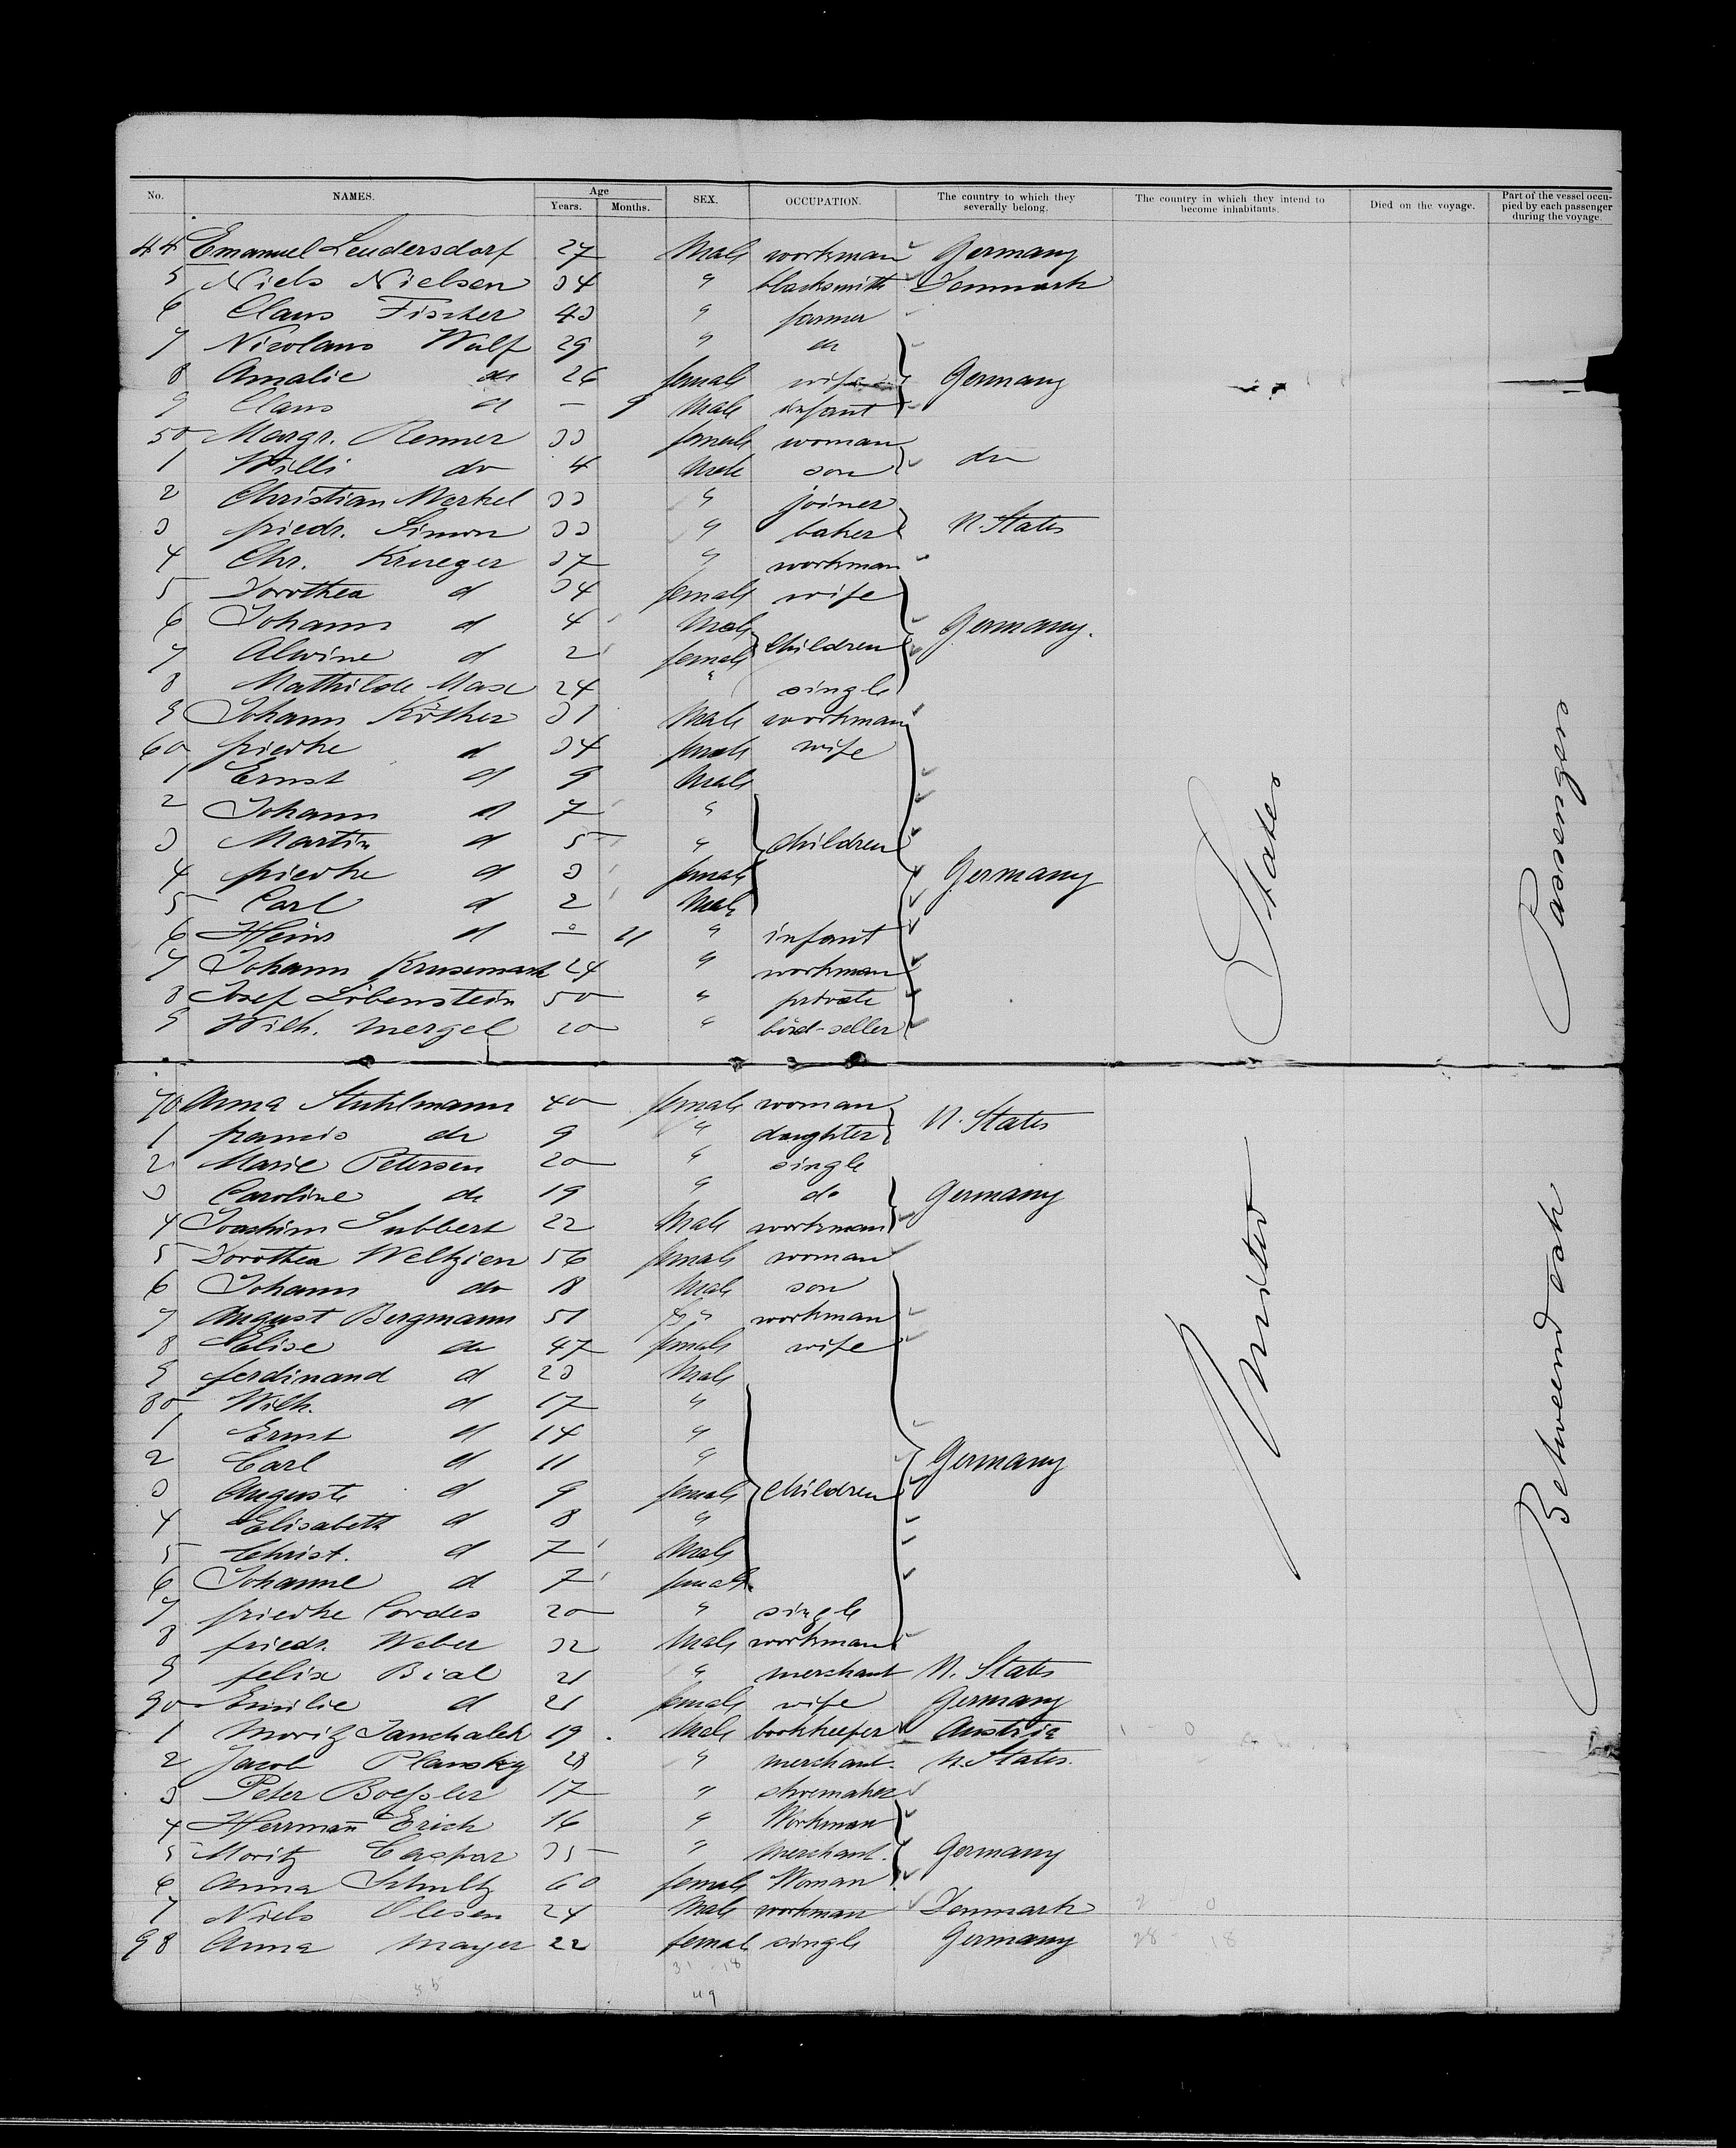 No. NAMES. Age Years. Months. SEX. OCCUPATION. The country to which they severally belong. The country in which they intend to become inhabitants. Died on the voyage. Part of the vessel occupied by each passenger during the voyage.
44 Emanuel Leudersdorf 27 Male workman Germany
5 Niels Nielsen 34 " blacksmith Denmark
6 Claus Fischer 43 " farmer
7 Nicolaus Wulf 29 " do
8 Amalie do 26 female wife Germany
9 Claus d — 9 Male infant
50 Margr. Renner 33 female woman
1 Willi do 4 Male son do
2 Christian Merkel 33 " joiner
3 friedr. Simon 33 " baker U. States
4 Chr. Krueger 37 " workman
5 Dorothea d 34 female wife
6 Johann d 4 Male children Germany.
7 Alwine d 2 female
8 Mathilde Mase 24 " single
9 Johann Köther 31 Male workman
60 friedke d 34 female wife
1 Ernst d 9 Male
2 Johann d 7 "
3 Martin d 5 " children
4 friedke d 3 female Germany
5 Carl d 2 Male
6 Heinr d — 11 " infant
7 Johann Krusemark 24 " workman
8 Josef Löbenstein 50 " private
9 Wilh. Mergel 20 " bird-seller
70 Anna Stuhlmann 40 female woman U. States
1 francis do 9 " daughter
2 Marie Petersen 20 " single
3 Caroline do 19 " do Germany
4 Joachim Lubbert 22 Male workman
5 Dorothea Weltzien 56 female woman
6 Johann do 18 Male son
7 August Bergmann 51 " workman
8 Elise do 47 female wife
9 ferdinand d 23 Male
80 Wilh. d 17 "
1 Ernst d 14 "
2 Carl d 11 " Germany
3 Auguste d 9 female children
4 Elisabeth d 8 "
5 Christ. d 7 Male
6 Johanne d 7 female
7 friedke Cordes 20 " single
8 friedr. Weber 32 Male workman
9 felix Bial 21 " merchant U. States
90 Emilie d 21 female wife Germany
1 Moritz Janchalek 19 Male bookkeeper Austria 1 0
2 Jacob Plansky 28 " merchant. U. States.
3 Peter Boessler 17 " shoemaker
4 Herrmañ Erich 16 " Workman
5 Moritz Caspar 35 " Merchant. Germany
6 Anna Schultz 60 female Woman
7 Niels Olesen 24 Male workman Denmark 2 0
98 Anna Mayer 22 female single Germany 28 18
31 18
49
United States
Betweend Dek Passengers